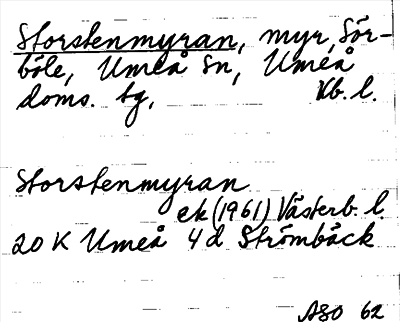 Storstenmyran, myr, Sör-
böle, Umeå sn, Umeå
doms. tg, Vb. l.
Storstenmyran
ek (1961) Västerb. l.
20 K Umeå 4 d Strömbäck
ASO 62